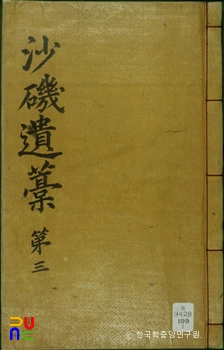 沙磯遺藁 第三
3428
199
© 한국학중앙연구원